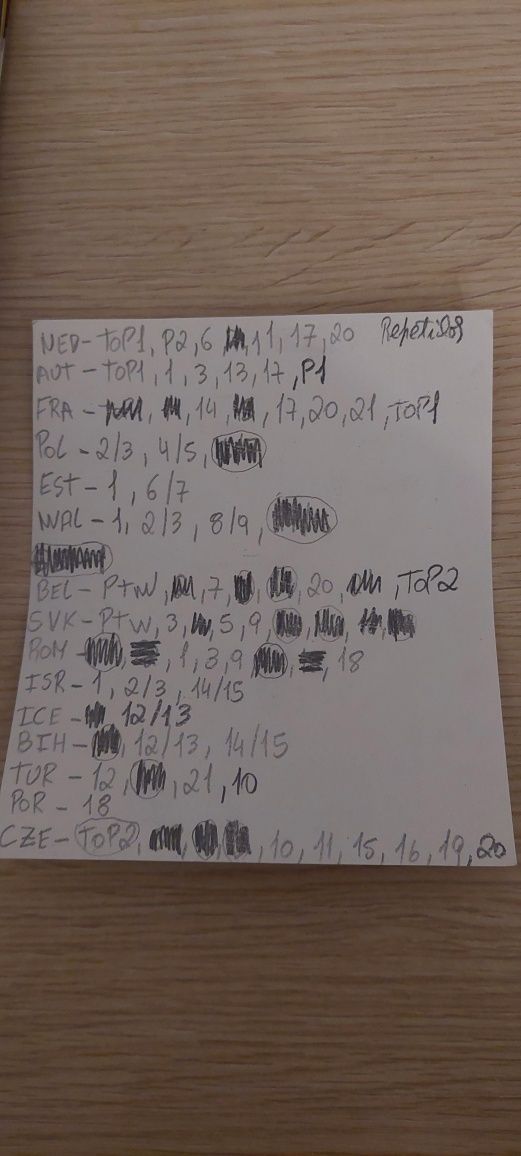 NED - TOP1, P2, 6 , 11, 17, 20 Repetidos
AUT - TOP1, 1, 3, 13, 17, P1
FRA - , , 14, , 17, 20, 21, TOP1
POL - 2/3, 4/5,
EST - 1, 6/7
WAL - 1, 2/3, 8/9,
BEL - PTW, , 7, , , 20, , TOP2
SVK - PTW, 3, , 5, 9, , , ,
ROM - , , 1, 3, 9 , , 18
ISR - 1, 2/3, 14/15
ICE - , 12/13
BIH - , 12/13, 14/15
TUR - 12, , 21, 10
POR - 18
CZE - TOP2, , , , 10, 11, 15, 16, 19, 20